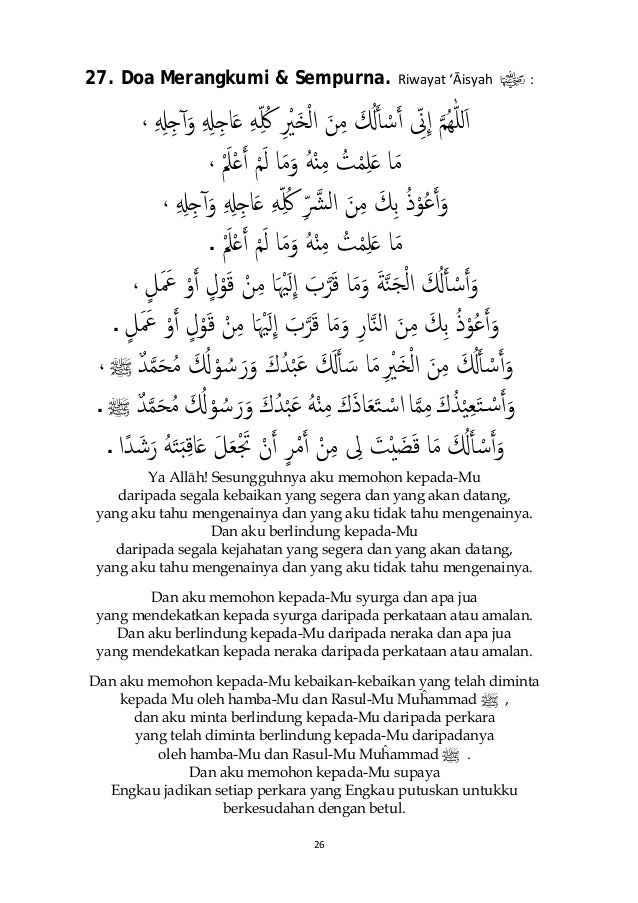 27. Doa Merangkumi & Sempurna. Riwayat ‘Āisyah رضي الله عنها :
اَللّٰهُمَّ إِنِّى أَسْأَلُكَ مِنَ الْخَيْرِ كُلِّهِ عَاجِلِهِ وَآجِلِهِ ،
مَا عَلِمْتُ مِنْهُ وَمَا لَمْ أَعْلَمْ ،
وَأَعُوْذُ بِكَ مِنَ الشَّرِّ كُلِّهِ عَاجِلِهِ وَآجِلِهِ ،
مَا عَلِمْتُ مِنْهُ وَمَا لَمْ أَعْلَمْ .
وَأَسْأَلُكَ الْجَنَّةَ وَمَا قَرَّبَ إِلَيْهَا مِنْ قَوْلٍ أَوْ عَمَلٍ ،
وَأَعُوْذُ بِكَ مِنَ النَّارِ وَمَا قَرَّبَ إِلَيْهَا مِنْ قَوْلٍ أَوْ عَمَلٍ .
وَأَسْأَلُكَ مِنَ الْخَيْرِ مَا سَأَلَكَ عَبْدُكَ وَرَسُوْلُكَ مُحَمَّدٌ ﷺ ،
وَأَسْتَعِيْذُكَ مِمَّا اسْتَعَاذَكَ مِنْهُ عَبْدُكَ وَرَسُوْلُكَ مُحَمَّدٌ ﷺ .
وَأَسْأَلُكَ مَا قَضَيْتَ لِى مِنْ أَمْرٍ أَنْ تَجْعَلَ عَاقِبَتَهُ رَشَدًا .
Ya Allāh! Sesungguhnya aku memohon kepada-Mu
daripada segala kebaikan yang segera dan yang akan datang,
yang aku tahu mengenainya dan yang aku tidak tahu mengenainya.
Dan aku berlindung kepada-Mu
daripada segala kejahatan yang segera dan yang akan datang,
yang aku tahu mengenainya dan yang aku tidak tahu mengenainya.
Dan aku memohon kepada-Mu syurga dan apa jua
yang mendekatkan kepada syurga daripada perkataan atau amalan.
Dan aku berlindung kepada-Mu daripada neraka dan apa jua
yang mendekatkan kepada neraka daripada perkataan atau amalan.
Dan aku memohon kepada-Mu kebaikan-kebaikan yang telah diminta
kepada Mu oleh hamba-Mu dan Rasul-Mu Muĥammad ﷺ ,
dan aku minta berlindung kepada-Mu daripada perkara
yang telah diminta berlindung kepada-Mu daripadanya
oleh hamba-Mu dan Rasul-Mu Muĥammad ﷺ .
Dan aku memohon kepada-Mu supaya
Engkau jadikan setiap perkara yang Engkau putuskan untukku
berkesudahan dengan betul.
26